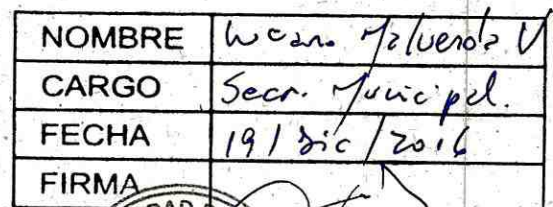 NOMBRE Luciano Malvenda V
CARGO Secr. Municipal.
FECHA 19/Dic/2016
FIRMA